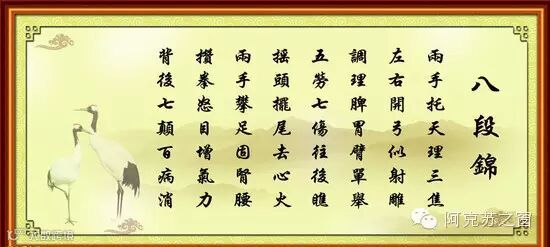 八段錦
兩手托天理三焦
左右開弓似射雕
調理脾胃臂單舉
五勞七傷往後瞧
摇頭擺尾去心火
兩手攀足固腎腰
攢拳怒目增氣力
背後七顛百病消
阿克苏之窗